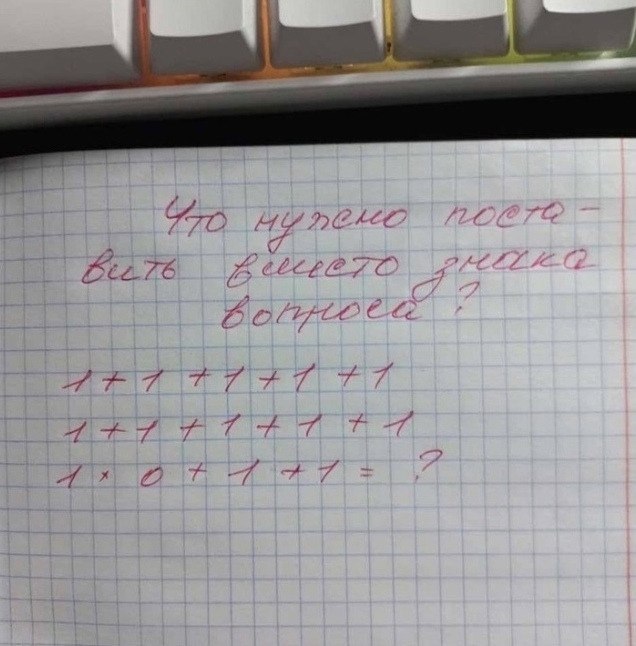 Что нужно поста-
вить вместо знака
вопроса?
1 + 1 + 1 + 1 + 1
1 + 1 + 1 + 1 + 1
1 × 0 + 1 + 1 = ?